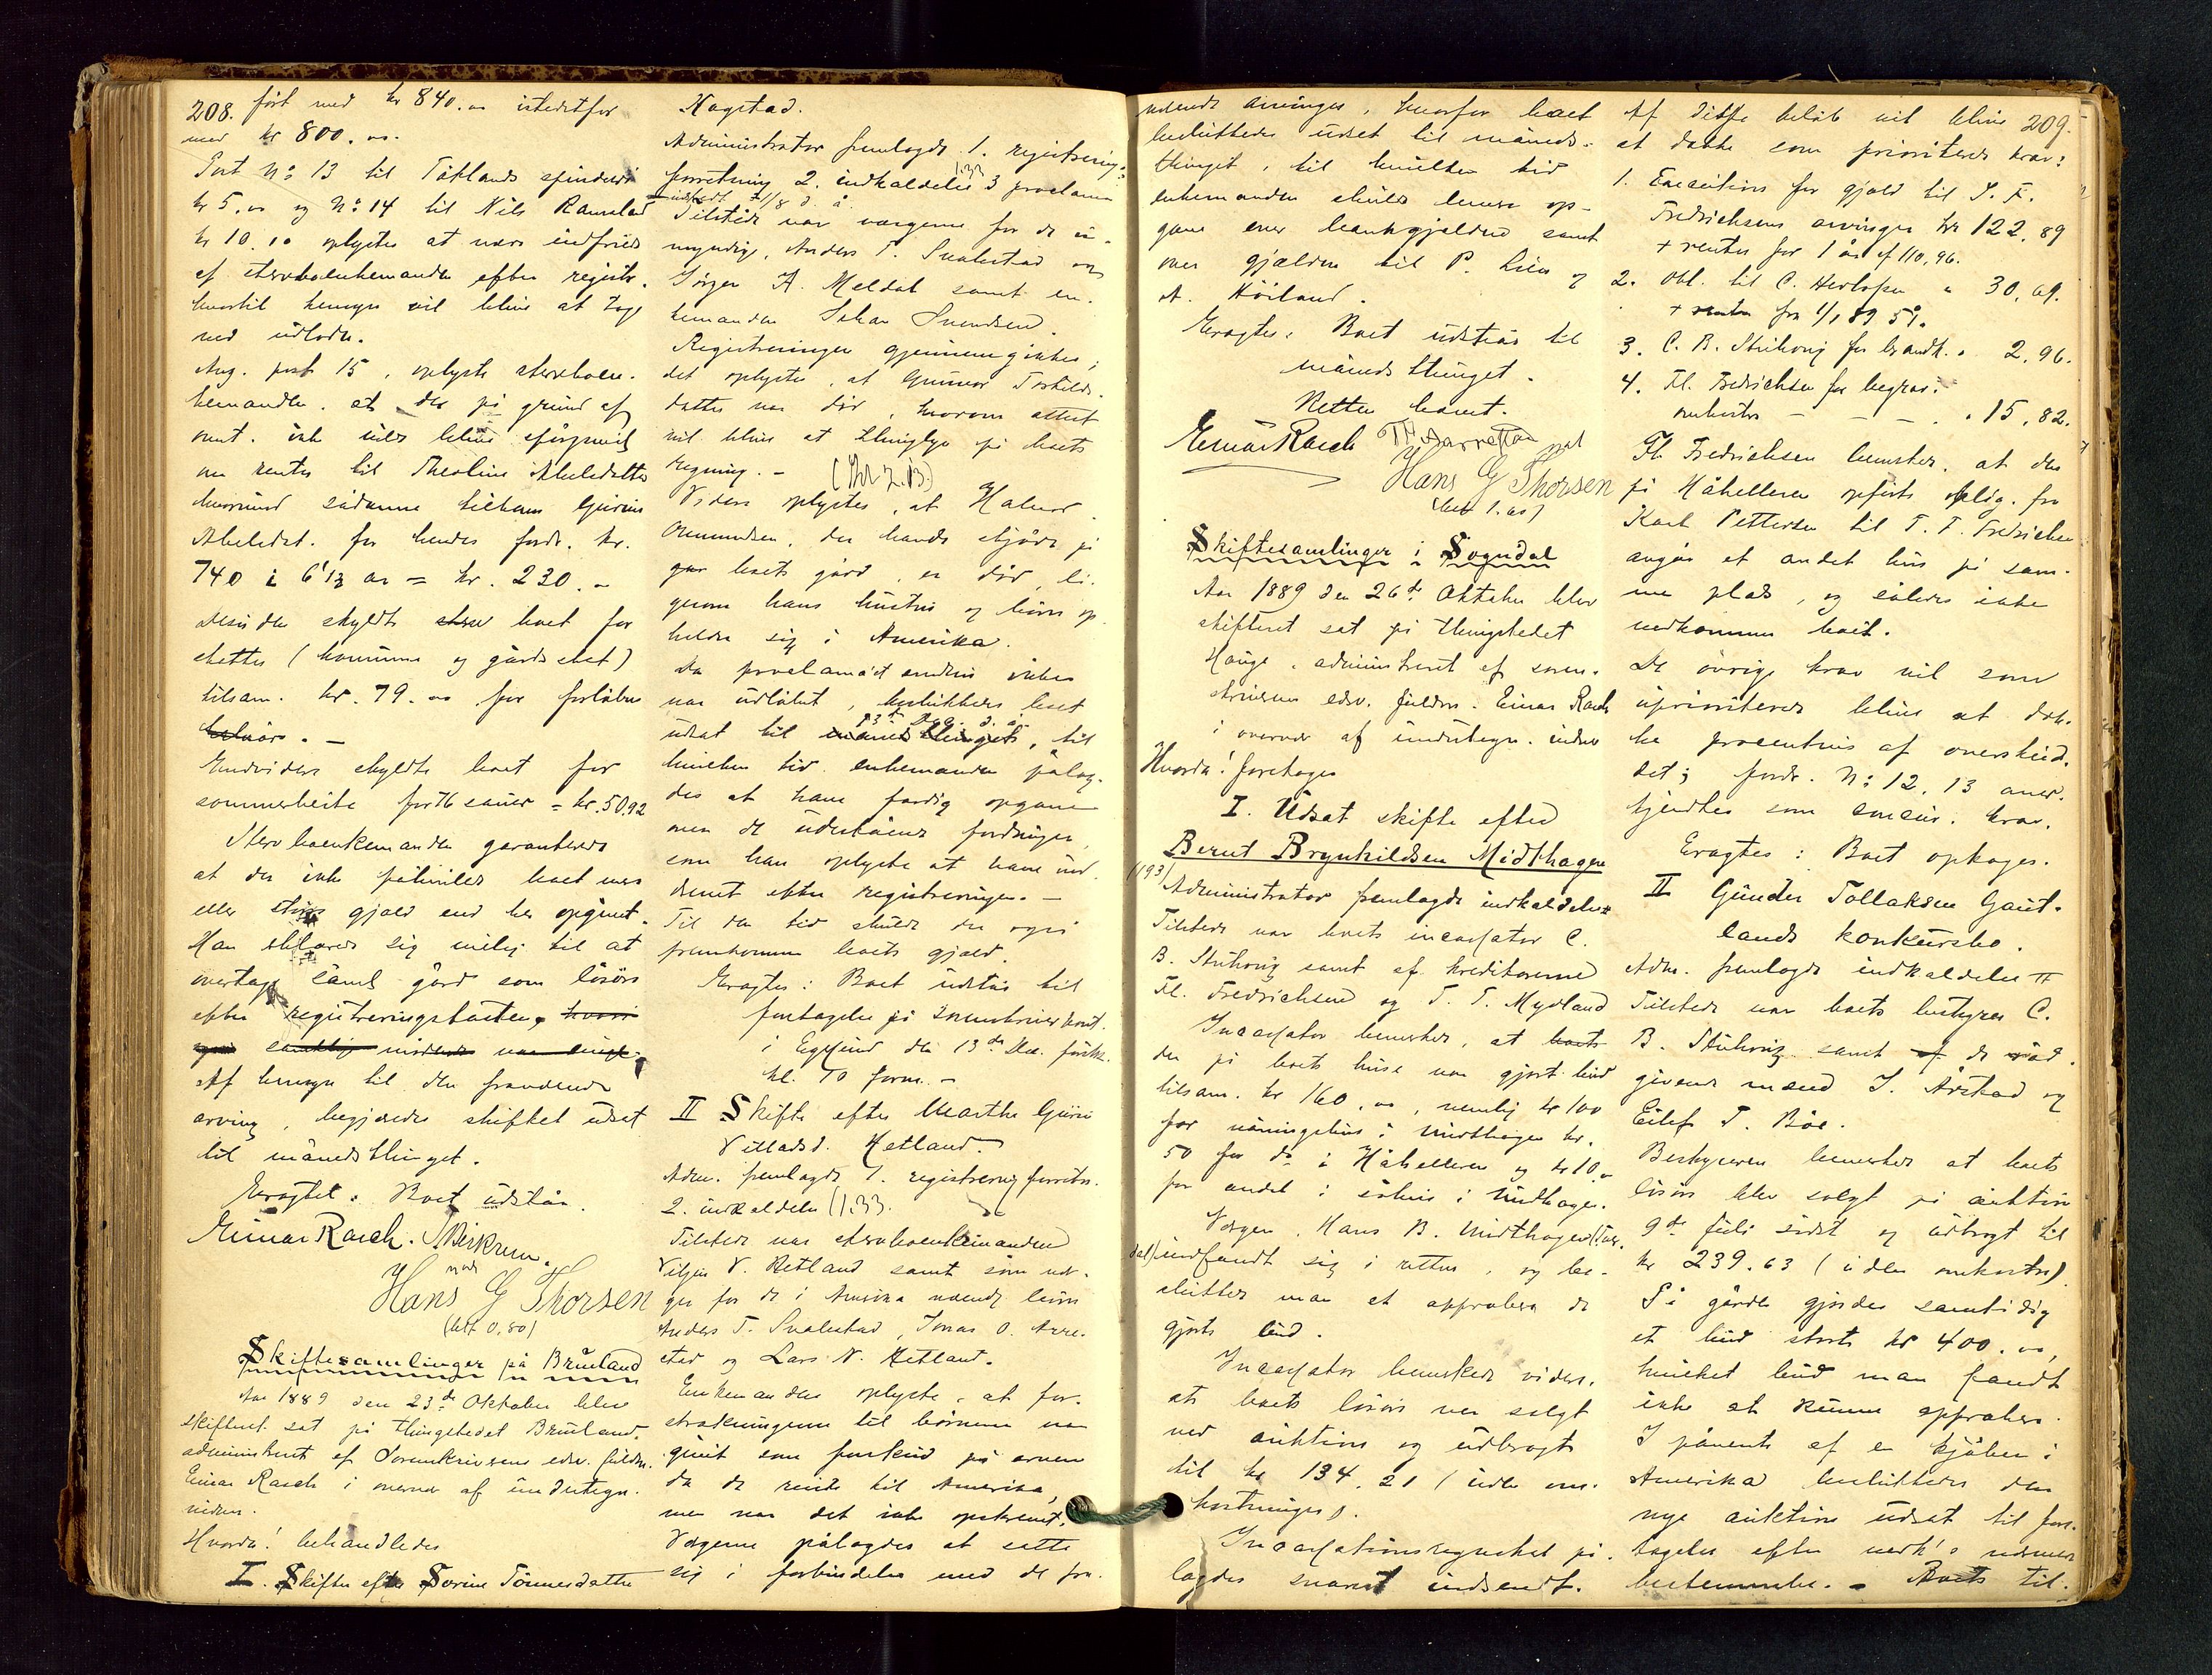 208. ført med kr 840.00 istedetfor
med kr 800.00.
Post No 13 til Tøtlands spinderi
kr 5.00 og No 14 til Nils Ramslad
kr 10.10 oplystes at være indfriede
af stervboenkemanden efter registr.
hvortil hensyn vil blive at tage
ved udlodn.
Ang. post 15, oplyste stervboen-
kemanden, at der på grund af
omst. ikke vilde blive spørgsmål
om renter til Theoline Abeledatter
hvorimod sådanne tilkom Gurine
Abeledat. for hendes fordr. kr.
740 i 6 1/2 år = kr. 230.-
Desuden skyldte boet for
skatter (kommune og gårdsskat)
tilsam. kr. 79.00 for forløbne
halvår. -
Endvidere skyldte boet for
sommerbeite for 76 sauer = kr. 50.92
Stervboenkemanden garanterede
at der ikke påhviled boet mere
eller større gjæld end her opgivet.
Han erklærede sig villig til at
overtage såvel gård som løsøre
efter registreringstaxten,
Af hensyn til den fraværende
arving, begjæredes skiftet udsat
til månedsthinget.
Eragtet: Boet udstår.
Einar Rasch. Birkrem.
med
Hans G Thorsen
(bet 0,80)
Skiftesamlinger på Bruland
Aar 1889 den 23de Oktober blev
skifteret sat på thingstedet Bruland,
administreret af Sorenskriverens edsv. fuldm.
Einar Rasch i overvær af undertegn.
vidner.
Hvorda! behandledes
I. Skifte efter Sorine Tønnesdatter
Hagstad.
Administrator fremlagde 1. registrerings-
forretning 2. indkaldelse 3 proclama
indrykt 7/8 d. å.
Tilstede var værgerne for de u-
myndige, Anders T. Svalestad og
Jørgen A. Meldal samt en-
kemanden Johan Svendsen.
Registreringen gjennemgikkes;
det oplystes, at Gunnor Torkilds-
datter var død, hvorom attest
vil blive at thinglyse på boets
regning. -
Videre oplystes, at Halvor
Omundsen, der havde skjøde på
boets gård, er død, li-
gesom hans hustru og børn op-
holder sig i Amerika.
Da proclamaet endnu ikke
var udløbet, besluttedes boet
udsat til 13de Dec. d. å., til
hvilken tid enkemanden pålag-
des at have færdig opgave
over de udestående fordringer,
som han oplyste at have ind-
drevet efter registreringen. -
Til den tid skulde der også
fremkomme boets gjæld.
Eragtes: Boet udstår til
foretagelse på Sorenskriverkont.
i Egersund den 13de Dec. førstk.
kl. 10 form. -
II Skifte efter Marthe Guri
Villadsd. Hetland.
Adm. fremlagde 1. registrering forretn.
2. indkaldelse
Tilstede var stervboenkemanden
V. Hetland samt som vær-
ger for de i Amerika værende børn
Anders T. Svalestad, Jonas O. Arre-
stad og Lars N. Hetland.
Enkemanden oplyste, at for-
strækningerne til børnene var
givet som forskud på arven
da de reiste til Amerika,
men var det ikke opskrevet.
Værgerne pålagdes at sætte
sig i forbindelse med de fra-
værende arvinger, hvorfor boet
besluttedes udsat til måneds-
thinget, til hvilken tid
enkemanden skulde levere op-
gave over bankgjælden samt
over gjælden til P. Lien og
A. Höiland.
Eragtes: Boet udstår til
månedsthinget.
Retten hævet.
Einar Rasch
med
Hans G Thorsen
(bet 1.60)
Skiftesamlinger i Sogndal
Aar 1889 den 26de Oktober blev
skifteret sat på thingstedet
Hauge, administreret af soren-
skriverens edsv. fuldm. Einar Rasch
i overvær af undertegn. vidner
Hvorda! foretoges
I. Udsat skifte efter
Bernt Brynhildsen Midthagen
(193)
Administrator fremlagde indkaldelse
Tilstede var boets incassator C.
B. Stuhrvig samt af kreditorerne
Fl. Fredrichsen og T. T. Mydland
Incassator bemerkte, at
der på boets huse var gjort bud
tilsam. kr 160.00, nemlig kr 100
for våningshus i Midthagen kr.
50 for do i Håhelleren og kr 10.00
for andel i søhus i Midthagen.
Værgen, Hans B. Midthagen
indfandt sig i retten, og be-
sluttedes man at approbere de
gjorte bud.
Incassator bemerkede videre,
at boets løsøre var solgt
ved auktion og udbragt
til kr 134.21 (uden om-
kostninger).
Incassationsregnskabet på-
lagdes snarest indsendt.
209.
Af disse beløb vil blive
at dække som prioriterede krav:
1. Execution for gjæld til J. F.
Fredrichsens arvinger kr 122,89
+ renter for 1 år af 110,96.
2. Obl. til C. Herlofsen " 30,69.
+ renter fra 1/1 89 5%.
3. C. B. Stuhrvig for brandk. " 2,96.
4. Fl. Fredrichsen for begrav.
omkostn - - - " 15,82.
Fl. Fredrichsen bemerkede, at den
på Håhelleren opførte oblig. fra
Karl Pettersen til T. F. Fredrichsen
angår et andet hus på sam-
me plads, og således ikke
vedkommer boet.
De øvrige krav vil som
uprioriterede blive at dæk-
ke procentvis af overskud-
det; fordr. No: 12, 13 aner-
kjendtes som krav.
Eragtes: Boet optages.
II Gunder Tollaksen Gaut-
lands konkursbo.
Adm. fremlagde indkaldelse
Tilstede var boets bestyrer C.
B. Stuhrvig samt de råd-
givende mænd J. Årstad og
Eilef T. Böe.
Bestyreren bemerkede at boets
løsøre blev solgt på auktion
9de juli sidst og udbragt til
kr 239.63 (uden omkostn.)
På gården gjordes samtidig
et bud stort kr 400.00,
hvilket bud man fandt
ikke at kunne approbere.
I påvente af en kjøber i
Amerika besluttedes den
nye auktion udsat til fore-
tagelse efter nærmere
bestemmelse. - Boets til-